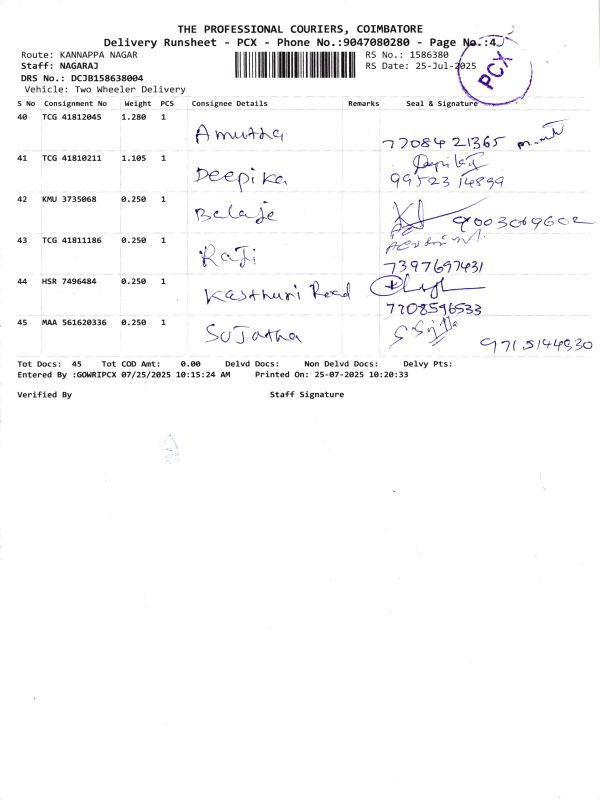 THE PROFESSIONAL COURIERS, COIMBATORE
Delivery Runsheet - PCX - Phone No.:9047080280 - Page No.:4
Route: KANNAPPA NAGAR RS No.: 1586380
Staff: NAGARAJ RS Date: 25-Jul-2025
PCX
DRS No.: DCJB158638004
Vehicle: Two Wheeler Delivery
S No Consignment No Weight PCS Consignee Details Remarks Seal & Signature
40 TCG 41812045 1.280 1
Amutha 77084 21365
41 TCG 41810211 1.105 1
Deepika 99523 14899
42 KMU 3735068 0.250 1
Balaje 9003069602
43 TCG 41811186 0.250 1
Raji
7397697431
44 HSR 7496484 0.250 1
Kasthuri Road
7708596533
45 MAA 561620336 0.250 1
Sujatha 9715144930
Tot Docs: 45 Tot COD Amt: 0.00 Delvd Docs: Non Delvd Docs: Delvy Pts:
Entered By :GOWRIPCX 07/25/2025 10:15:24 AM Printed On: 25-07-2025 10:20:33
Verified By Staff Signature